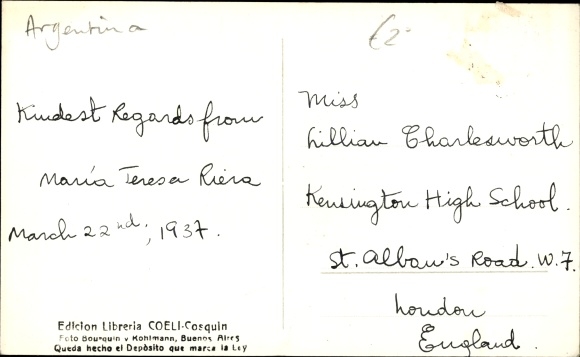 Argentina
£2-
Kindest Regards from
María Teresa Riera
March 22nd, 1937.
Edicion Libreria COELI-Cosquin
Foto Bourquin y Kohlmann, Buenos Aires
Queda hecho el Depósito que marca la Ley
Miss
Lillian Charlesworth
Kensington High School.
St. Alban's Road. W.7.
London
England.